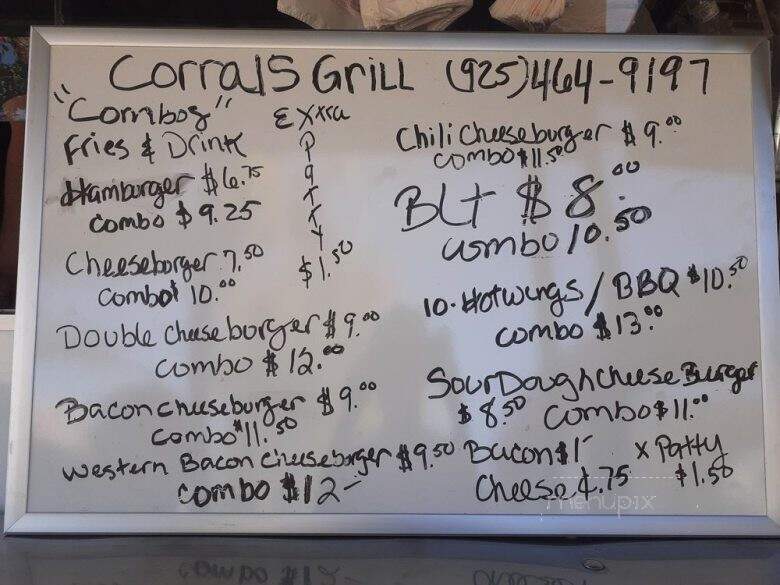 Corrals Grill (925)464-9197
"Combos"
Fries & Drink
Extra
P
a
T
T
y
$1.50
Hamburger $6.75
combo $9.25
Cheeseburger 7.50
combo 10.00
Double cheeseburger $9.00
combo $12.00
Bacon cheeseburger $9.00
combo $11.50
Western Bacon cheeseburger $9.50
combo $12-
Chili cheeseburger $9.00
combo $11.50
BLt $8.00
combo 10.50
10-Hotwings/BBQ $10.50
combo $13.00
SourDough cheese Burger
$8.50 combo $11.00
Bacon $1- x Patty
Cheese ¢.75 $1.50
menupix
COMBO $12